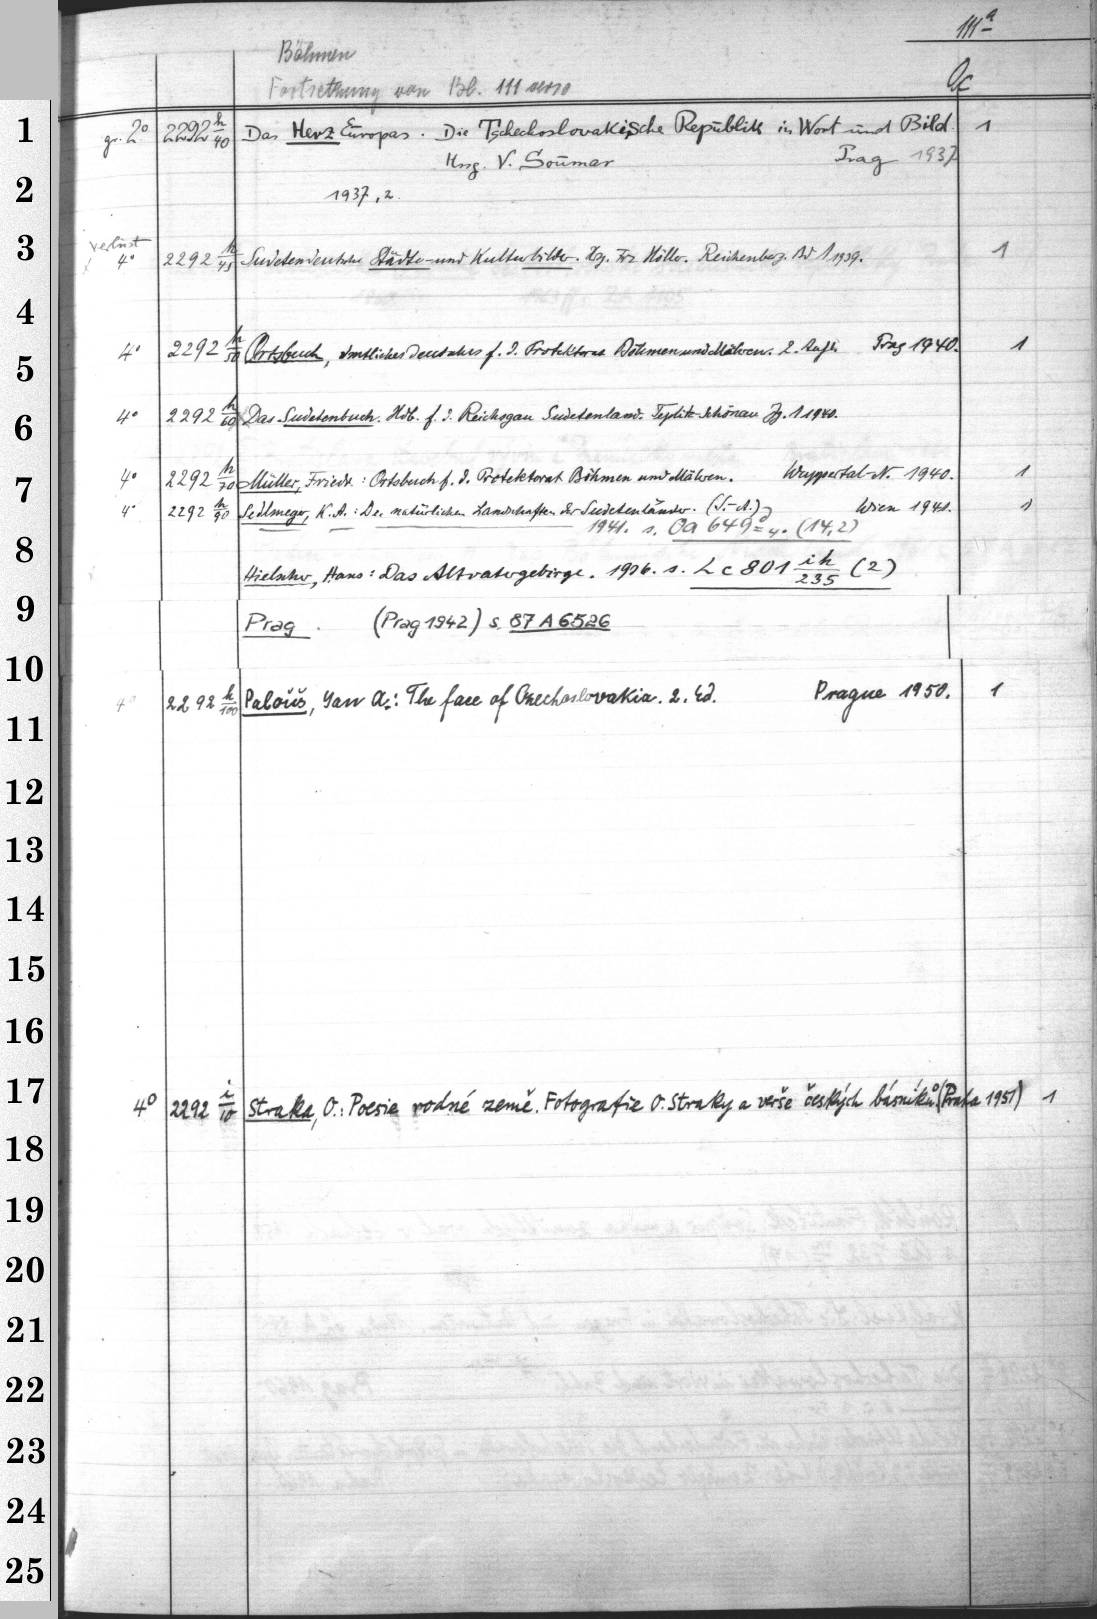 111ª
Böhmen
Oc
Fortsetzung von Bl. 111 verso
1
gr. 2° 2292 h/40 Das Herz Europas. Die Tschechoslovakische Republik in Wort und Bild. 1
Hrsg. V. Soumar Prag 1937
2
1937, 2.
verlust
3
4° 2292 h/45 Sudetendeutsche Städte- und Kulturbilder. Hg. Frz Höller. Reichenberg. Bd 1 1939. 1
4
4° 2292 h/50 Ortsbuch, Amtliches Deutsches f. d. Protektorat Böhmen und Mähren. 2. Aufl. Prag 1940. 1
5
4° 2292 h/60 Das Sudetenbuch. Hdb. f. d. Reichsgau Sudetenland. Teplitz-Schönau Jg. 1 1940.
6
4° 2292 h/70 Müller, Friedr.: Ortsbuch f. d. Protektorat Böhmen und Mähren. Wuppertal-N. 1940. 1
7
4° 2292 h/90 Sedlmeyer, K. A.: Die natürlichen Landschaften der Sudetenländer. (S.-A.) Wien 1941. 1
1941. s. Oa 649 (14,2)
8
Hielscher, Hans: Das Altvatergebirge. 1936. s. Lc 801 ih/235 (2)
9
Prag. (Prag 1942) s. 87 A 6526
10
4° 2292 h/100 Palouš, Jan A.: The face of Czechoslovakia. 2. Ed. Prague 1950. 1
11
12
13
14
15
16
17
4° 2292 i/10 Straka, O.: Poesie rodné země. Fotografie O. Straky a verše českých básníků. (Praha 1951) 1
18
19
20
21
22
23
24
25